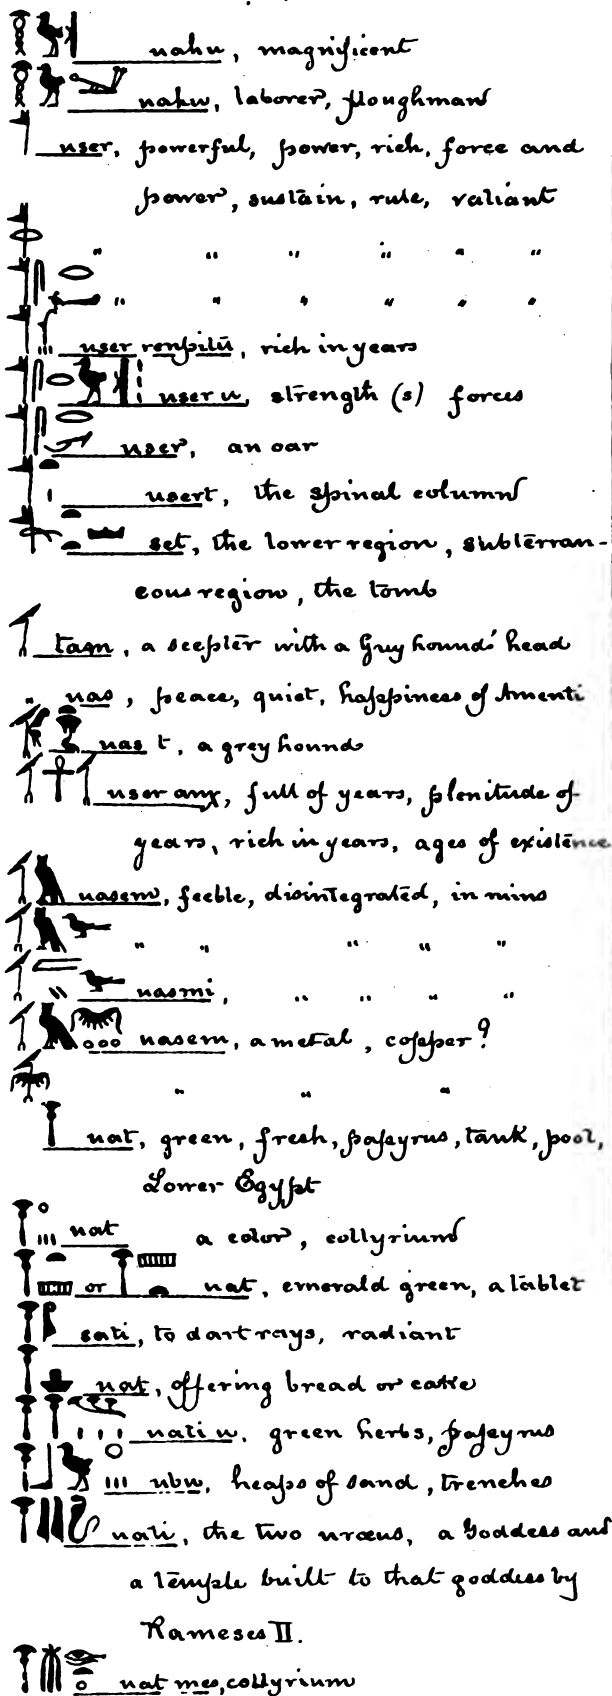 nahu, magnificent
nahu, laborer, ploughman
user, powerful, power, rich, force and
power, sustain, rule, valiant
" " " " " "
" " " " " "
user renpitu, rich in years
user u, strength (s) forces
user, an oar
usert, the spinal column
set, the lower region, subterran-
eous region, the tomb
tam, a scepter with a Greyhound's head
" uas, peace, quiet, happiness of Amenti
uas t, a greyhound
user anχ, full of years, plenitude of
years, rich in years, ages of existence
uasem, feeble, disintegrated, in ruins
" " " " "
uasmi, " " " "
uasem, a metal, copper?
" " "
uat, green, fresh, papyrus, tank, pool,
Lower Egypt
uat a color, collyrium
or uat, emerald green, a tablet
sati, to dart rays, radiant
uat, offering bread or cake
uati u, green herbs, papyrus
ubu, heaps of sand, trenches
uati, the two uræus, a Goddess and
a temple built to that goddess by
Rameses II.
uat mes, collyrium